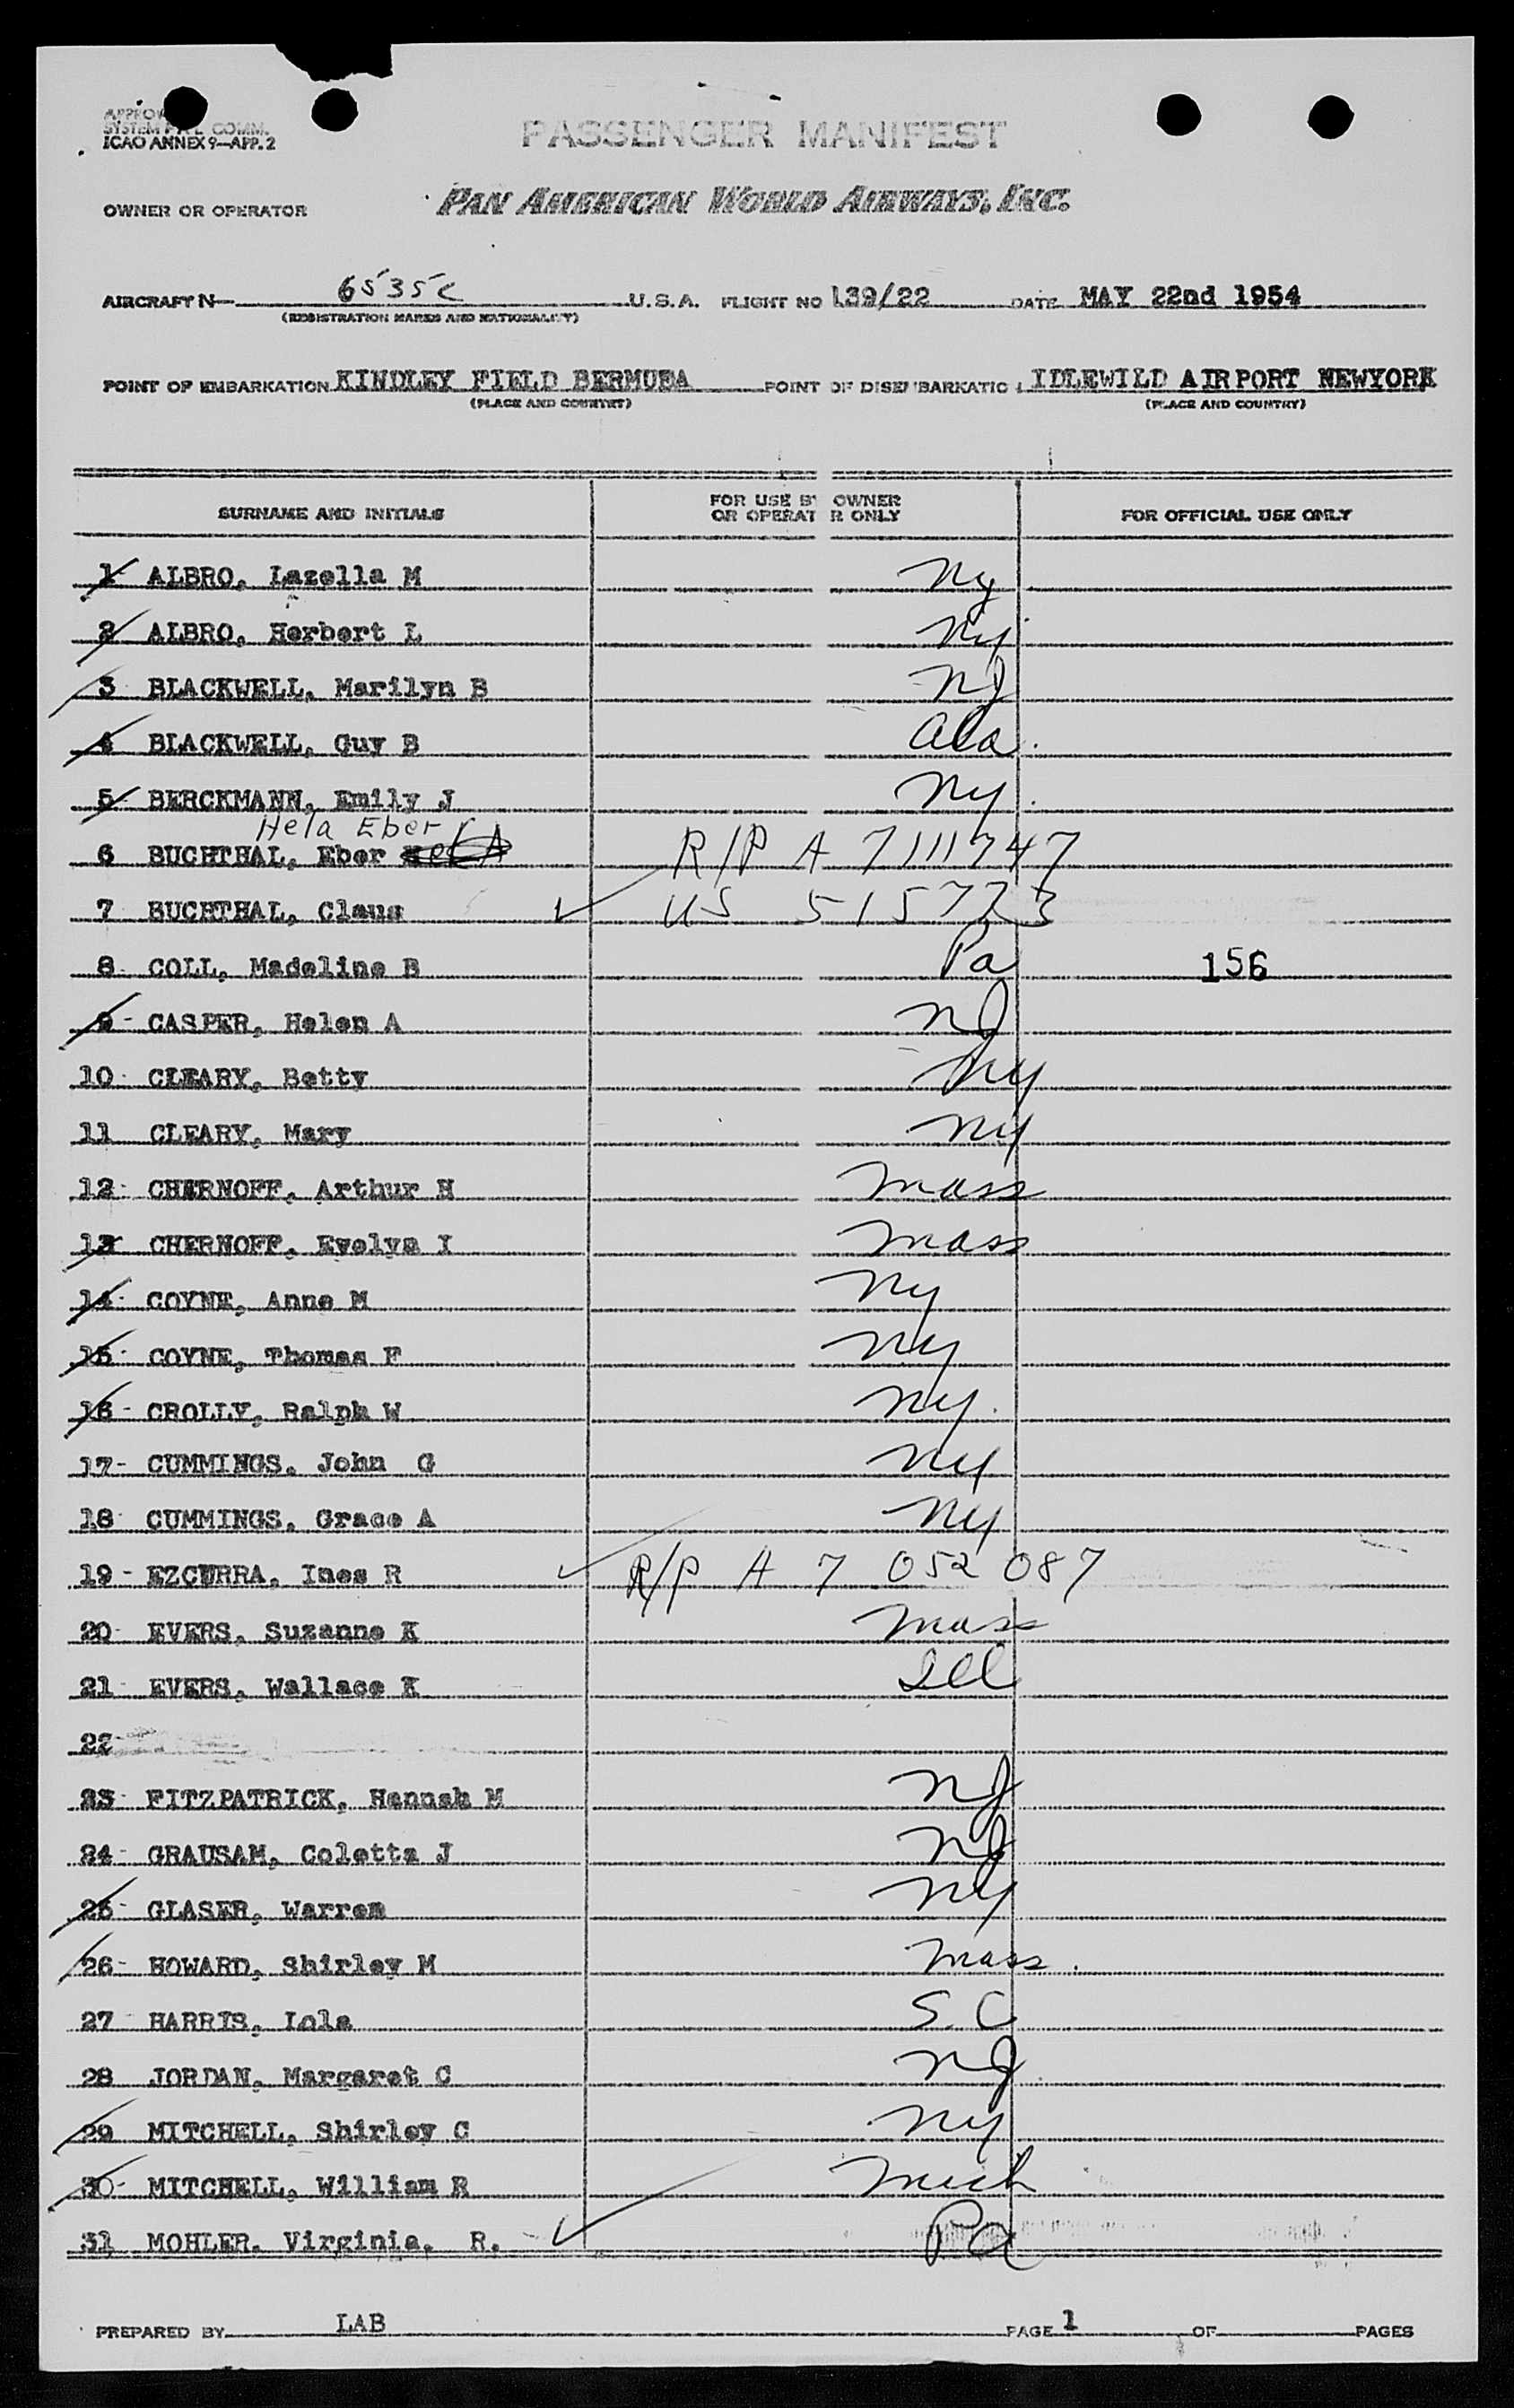 ICAO ANNEX 9—APP. 2
PASSENGER MANIFEST
OWNER OR OPERATOR PAN AMERICAN WORLD AIRWAYS, INC.
AIRCRAFT N 6535C U.S.A. FLIGHT NO 139/22 DATE MAY 22nd 1954
(REGISTRATION MARKS AND NATIONALITY)
POINT OF EMBARKATION KINDLEY FIELD BERMUDA POINT OF DISEMBARKATION IDLEWILD AIRPORT NEWYORK
(PLACE AND COUNTRY) (PLACE AND COUNTRY)
SURNAME AND INITIALS FOR USE BY OWNER OR OPERATOR ONLY FOR OFFICIAL USE ONLY
1 ALBRO, Lazella M Ny
2 ALBRO, Herbert L Ny
3 BLACKWELL, Marilyn B NJ
4 BLACKWELL, Guy B Ala.
5 BERCKMANN, Emily J Ny.
Hela Eber
6 BUCHTHAL, Eber R/P A 7111747
7 BUCHTHAL, Claus US 515723
8 COLL, Madeline B Pa 156
9- CASPER, Helen A NJ
10- CLEARY, Betty Ny
11 CLEARY, Mary Ny
12- CHERNOFF, Arthur H Mass
13 CHERNOFF, Evelyn I Mass
14- COYNE, Anne M Ny
15- COYNE, Thomas F Ny
16- CROLLY, Ralph W Ny.
17- CUMMINGS, John G Ny
18- CUMMINGS, Grace A Ny
19- EZCURRA, Ines R R/P A 7 052 087
20- EVERS, Suzanne K Mass
21- EVERS, Wallace K Ill
22-
23- FITZPATRICK, Hannah M NJ
24- GRAUSAM, Coletta J NJ
25- GLASER, Warren Ny
26- HOWARD, Shirley M Mass.
27 HARRIS, Lola S.C
28 JORDAN, Margaret C NJ
29 MITCHELL, Shirley C Ny
30- MITCHELL, William R Mich
31 MOHLER, Virginia. R. Pa
PREPARED BY LAB PAGE 1 OF PAGES